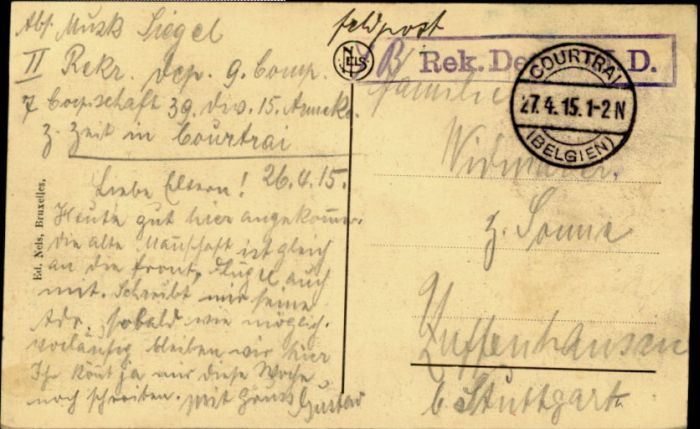 Abs. Musk Siegel
II Rekr. Dep. 9. Comp.
7 Corp.schaft 39. div. 15. Armeko.
z. Zeit in Courtrai
26.4.15.
Liebe Eltern!
Heute gut hier angekommen.
Die alte Mannschaft ist gleich
an die Front, Flügel auch
mit. Schreibt mir seine
Adr. sobald wie möglich.
vorläufig bleiben wir hier
Ihr könt ja nur diese Woche
noch schreiben. Mit Gruss Gustav
Ed. Nels, Bruxelles.
Feldpost
NELS
B Rek. De D.
COURTRAI
27.4.15.1-2N
(BELGIEN)
Familie
z. Sonne
Zuffenhausen
b Stuttgart